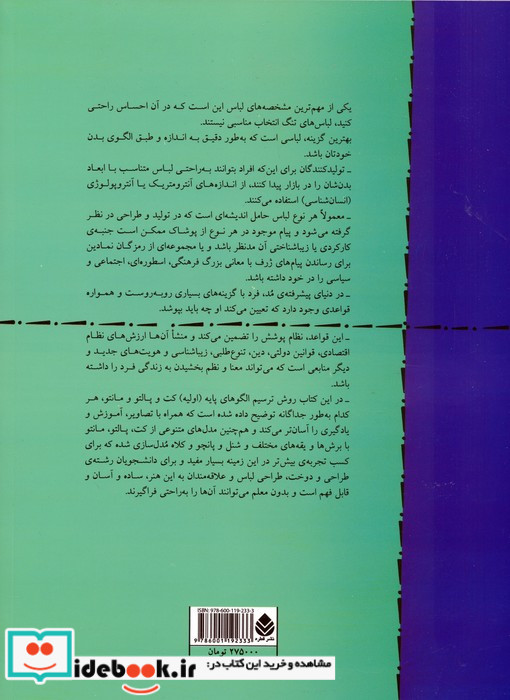 یکی از مهم‌ترین مشخصه‌های لباس این است که در آن احساس راحتی
کنید، لباس‌های تنگ انتخاب مناسبی نیستند.
بهترین گزینه، لباسی است که به‌طور دقیق به اندازه و طبق الگوی بدن
خودتان باشد.
ـ تولیدکنندگان برای این‌که افراد بتوانند به‌راحتی لباس متناسب با ابعاد
بدن‌شان را در بازار پیدا کنند، از اندازه‌های آنترومتریک یا آنتروپولوژی
(انسان‌شناسی) استفاده می‌کنند.
ـ معمولاً هر نوع لباس حامل اندیشه‌ای است که در تولید و طراحی در نظر
گرفته می‌شود و پیام موجود در هر نوع از پوشاک ممکن است جنبه‌ی
کارکردی یا زیباشناختی آن مدنظر باشد و یا مجموعه‌ای از رمزگان نمادین
برای رساندن پیام‌های ژرف با معانی بزرگ فرهنگی، اسطوره‌ای، اجتماعی و
سیاسی را در خود داشته باشد.
ـ در دنیای پیشرفته‌ی مُد، فرد با گزینه‌های بسیاری روبه‌روست و همواره
قواعدی وجود دارد که تعیین می‌کند او چه باید بپوشد.
ـ این قواعد، نظام پوشش را تضمین می‌کند و منشأ آن‌ها ارزش‌های نظام
اقتصادی، قوانین دولتی، دین، تنوع‌طلبی، زیباشناسی و هویت‌های جدید و
دیگر منابعی است که می‌تواند معنا و نظم بخشیدن به زندگی فرد را داشته
باشد.
ـ در این کتاب روش ترسیم الگوهای پایه (اولیه) کت و پالتو و مانتو، هر
کدام به‌طور جداگانه توضیح داده شده است که همراه با تصاویر، آموزش و
یادگیری را آسان‌تر می‌کند و هم‌چنین مدل‌های متنوعی از کت، پالتو، مانتو
با برش‌ها و یقه‌های مختلف و شنل و پانچو و کلاه مُدل‌سازی شده که برای
کسب تجربه‌ی بیش‌تر در این زمینه بسیار مفید و برای دانشجویان رشته‌ی
طراحی و دوخت، طراحی لباس و علاقه‌مندان به این هنر، ساده و آسان و
قابل فهم است و بدون معلم می‌توانند آن‌ها را به‌راحتی فراگیرند.
ISBN: 978-600-119-233-3
9786001192333
نشر قطره
۲۷۵۰۰۰ تومان
idebook.ir
مشاهده و خرید این کتاب در: